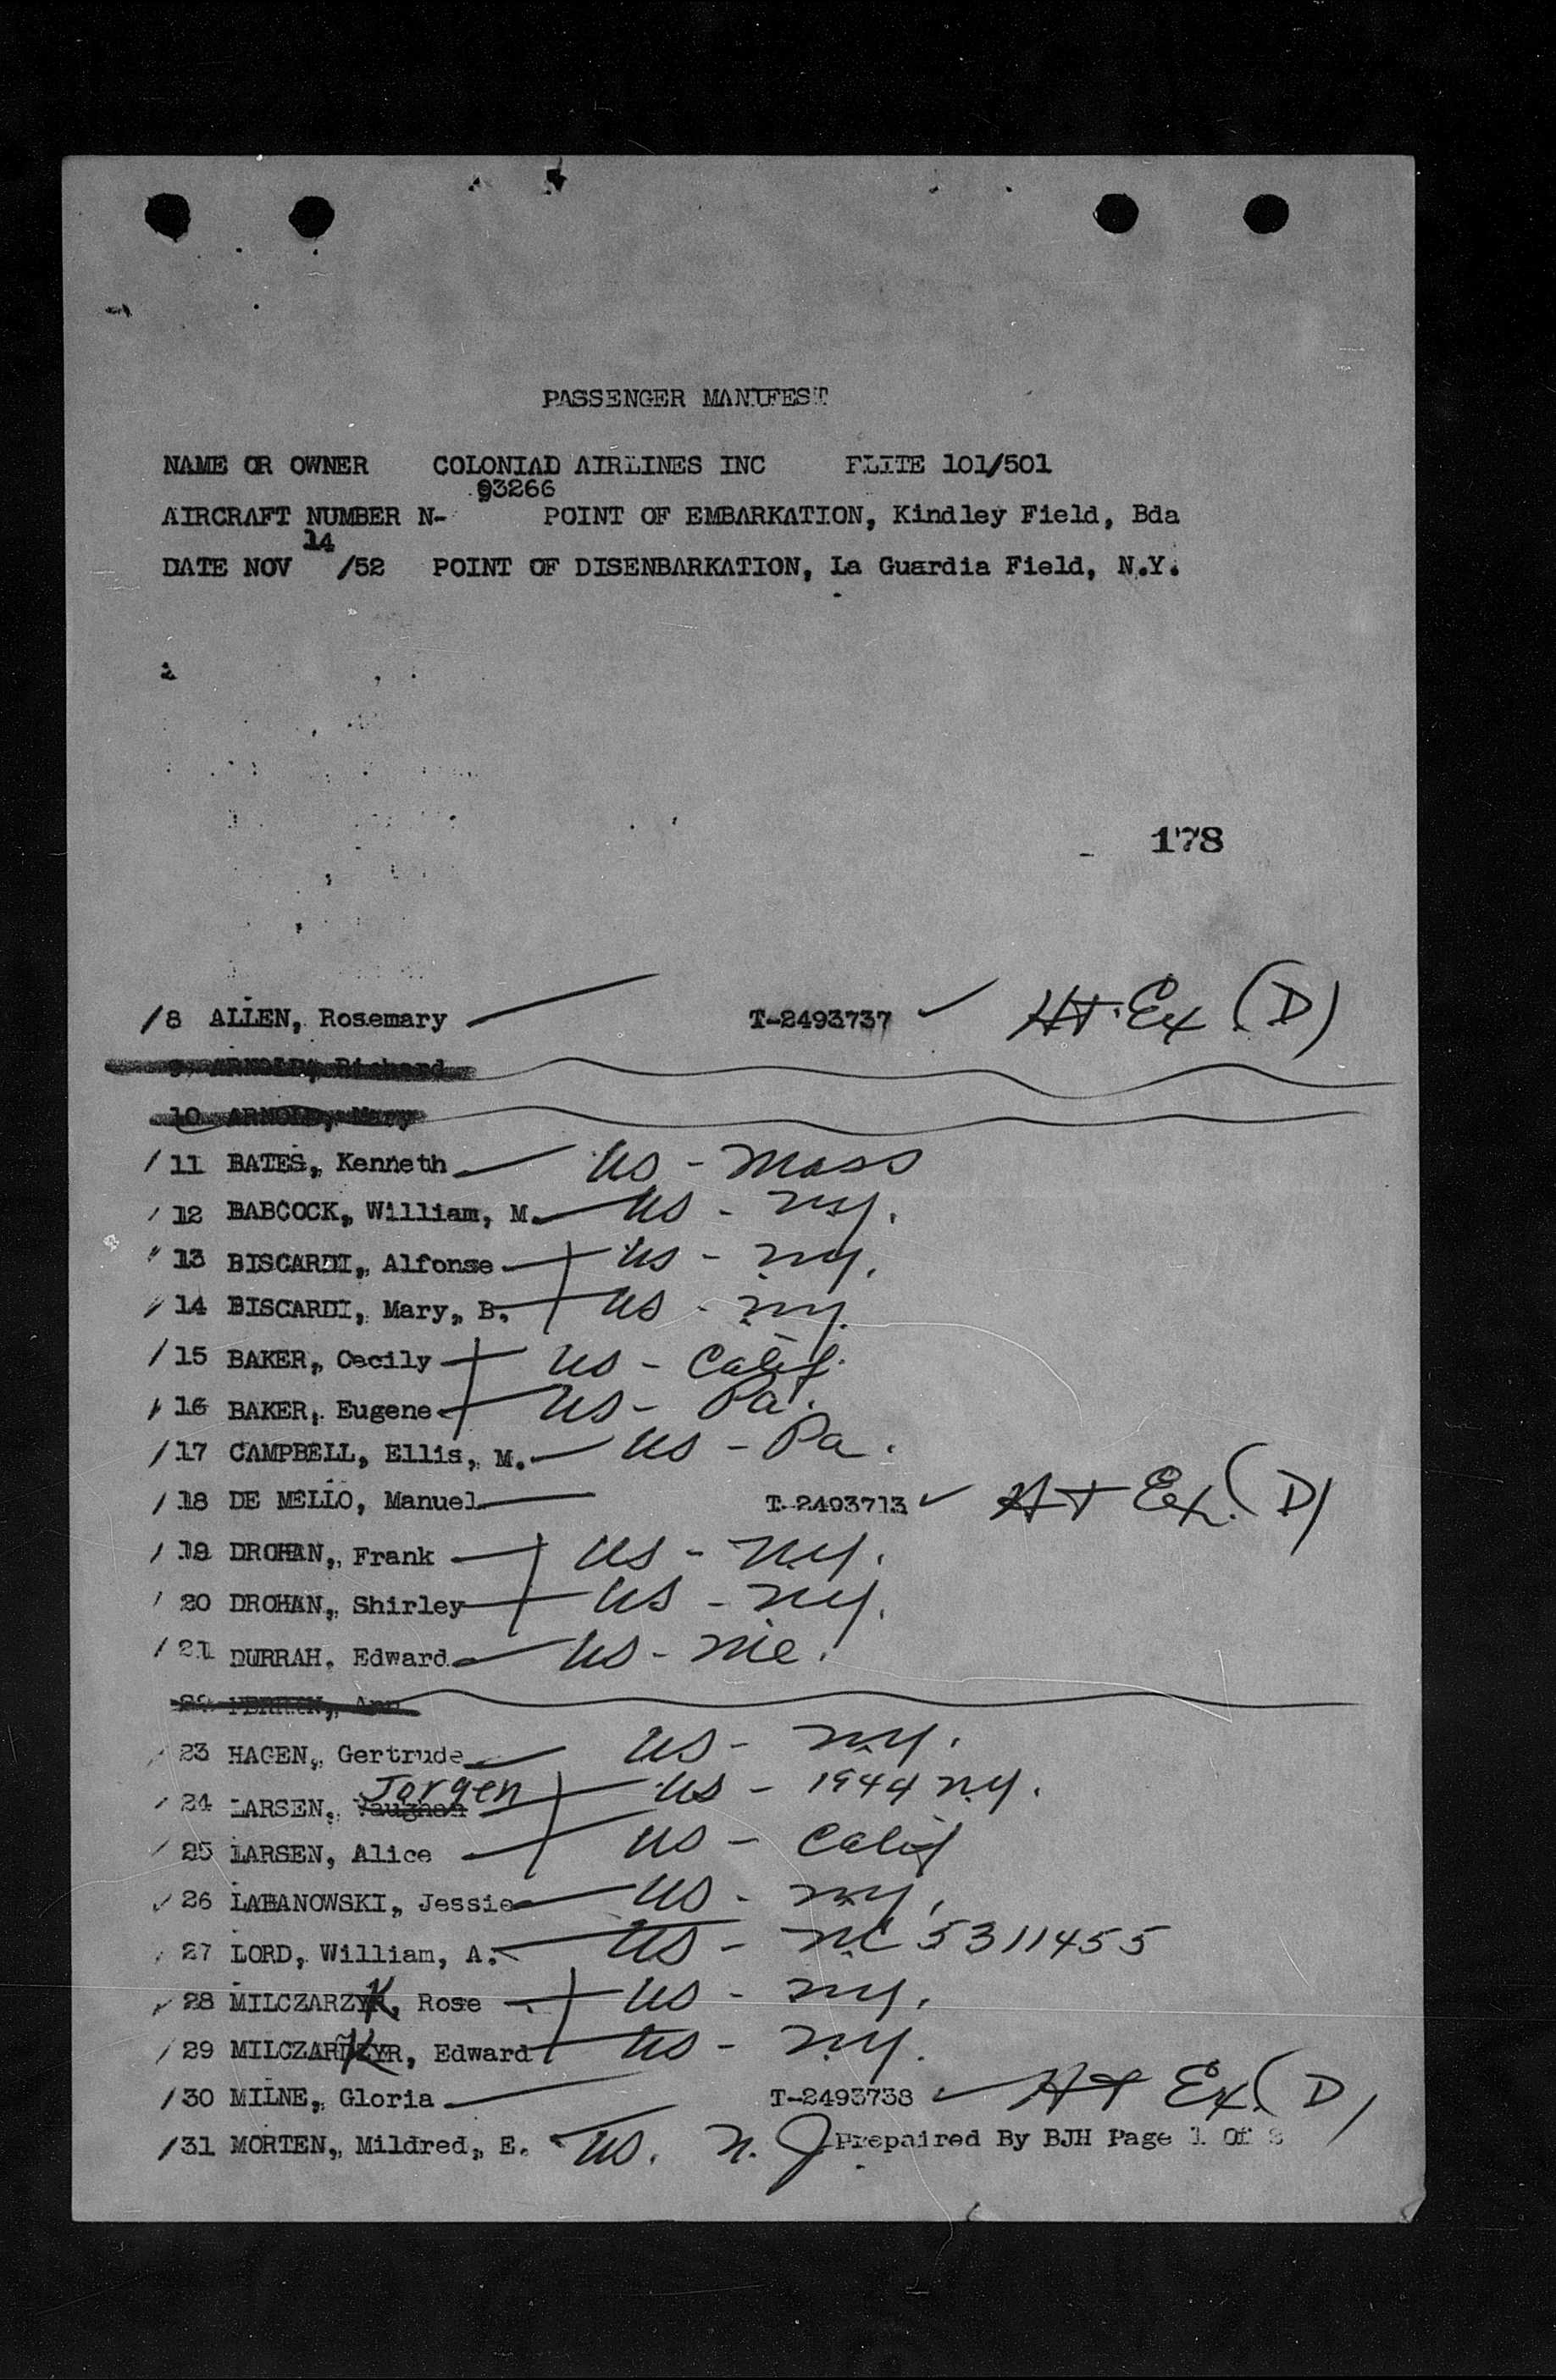 PASSENGER MANIFEST
NAME OR OWNER COLONIAD AIRLINES INC FLITE 101/501
93266
AIRCRAFT NUMBER N- POINT OF EMBARKATION, Kindley Field, Bda
14
DATE NOV /52 POINT OF DISENBARKATION, La Guardia Field, N.Y.
178
/8 ALLEN, Rosemary T-2493737 ✓ Ht. Ex (D)
9 ARNOLD, Richard
10 ARNOLD, Mary
/11 BATES, Kenneth US - Mass
/12 BABCOCK, William, M. US - NY.
/13 BISCARDI, Alfonse US - NY.
/14 BISCARDI, Mary, B. US - NY.
/15 BAKER, Cecily US - Calif.
/16 BAKER, Eugene US - Pa.
/17 CAMPBELL, Ellis, M. US - Pa.
/18 DE MELLO, Manuel T-2493713 ✓ Ht Ex. (D)
/19 DROHAN, Frank US - NY.
/20 DROHAN, Shirley US - NY.
/21 DURRAH, Edward US - Me.
22 Ann
/23 HAGEN, Gertrude US - NY.
Jorgen
/24 LARSEN, Vaughan US - 1944 NY.
/25 LARSEN, Alice US - Calif
/26 LABANOWSKI, Jessie US - NY.
/27 LORD, William, A. US - NC 5311455
/28 MILCZARZYK, Rose US - NY.
/29 Edward US - NY.
/30 MILNE, Gloria T-2493738 ✓ Ht Ex. (D)
/31 MORTEN, Mildred, E. US. N.J. Prepaired By BJH Page 1 Of